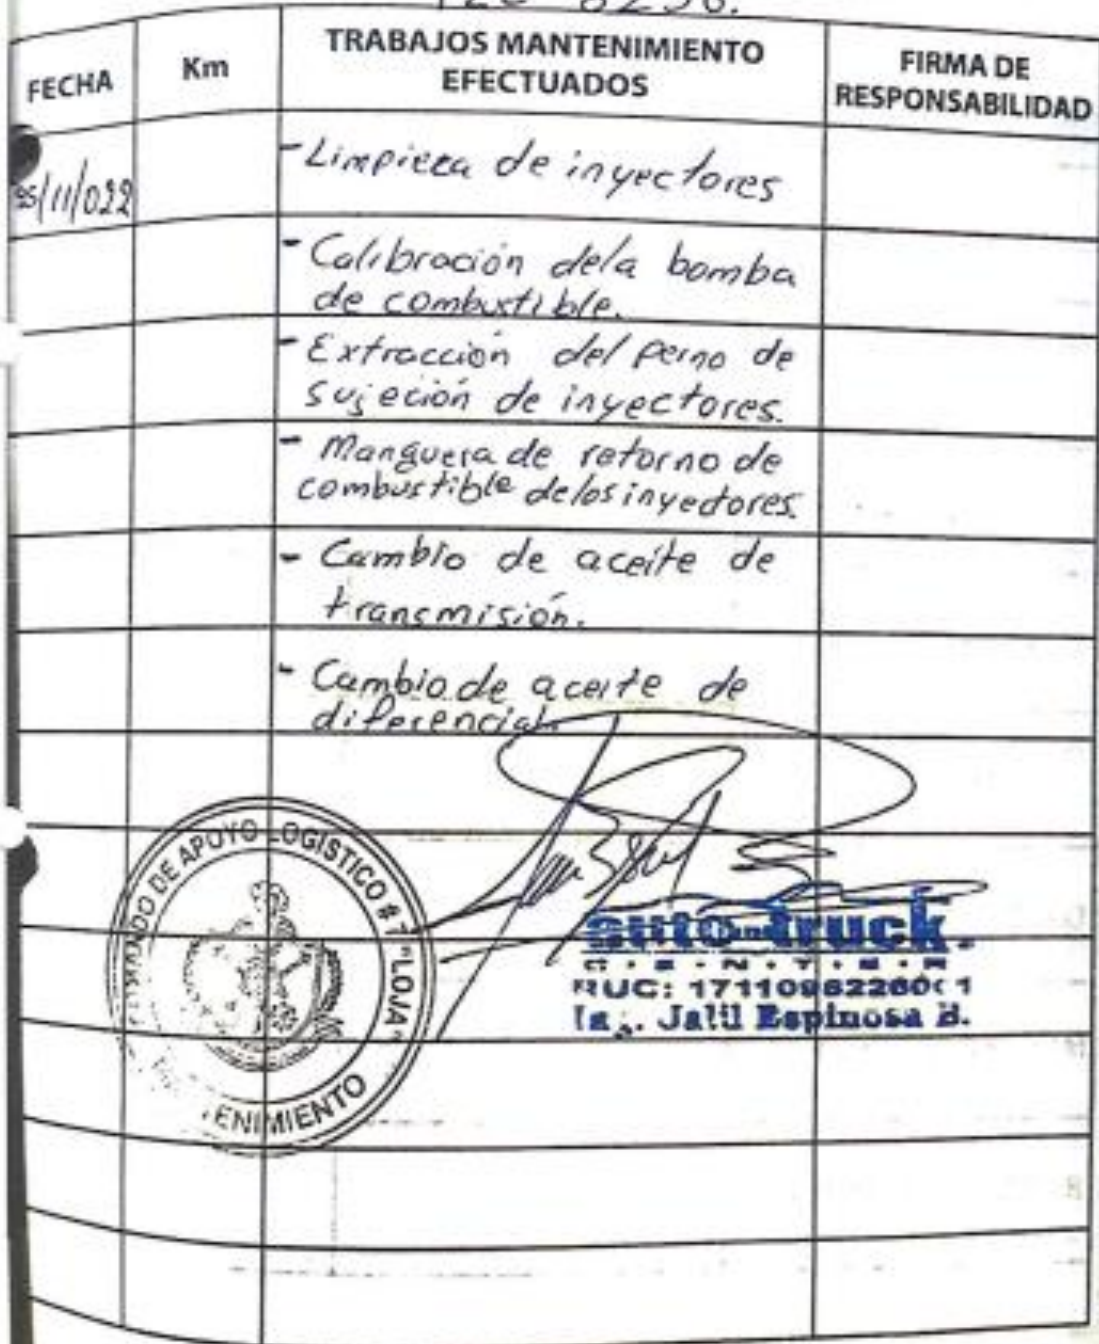 8256.
FECHA
Km
TRABAJOS MANTENIMIENTO
EFECTUADOS
FIRMA DE
RESPONSABILIDAD
25/11/022
- Limpieza de inyectores
- Calibración dela bomba
de combustible.
- Extracción del perno de
sujeción de inyectores.
- Manguera de retorno de
combustible delos inyectores.
- Cambio de aceite de
transmisión.
- Cambio de aceite de
diferencial.
DE APOYO LOGISTICO # 7 "LOJA"
ENIMIENTO
auto-truck
C·E·N·T·E·R
RUC: 
Jalil Espinosa B.